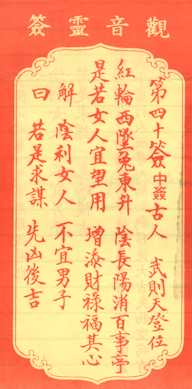 觀音靈簽
第四十簽 中簽 古人 武則天登位
紅輪西墜兔東升 陰長陽消百事亨
是若女人宜望用 增添財祿福其心
解 陰利女人 不宜男子
曰 若是求謀 先凶後吉